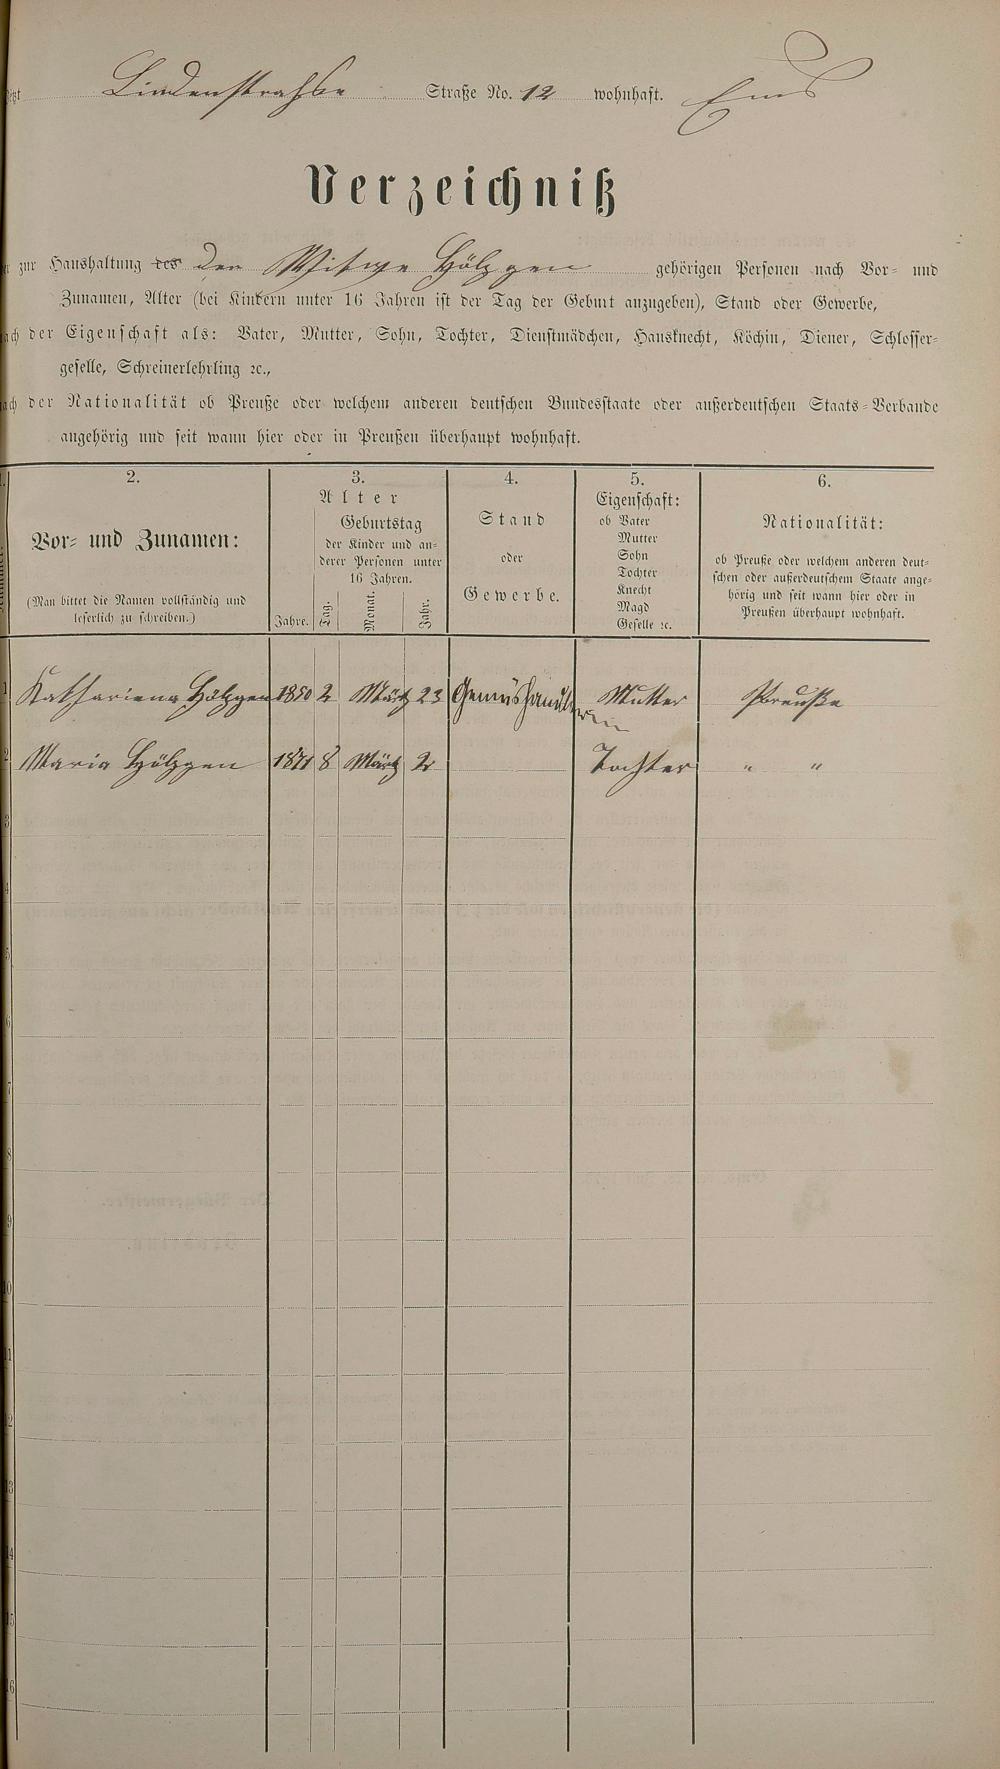 Lindenstrahse Straße No. 12 wohnhaft. Ems
Verzeichniß
zur Haushaltung des der Witwe Hölzgen gehörigen Personen nach Vor- und
Zunamen, Alter (bei Kindern unter 16 Jahren ist der Tag der Geburt anzugeben), Stand oder Gewerbe,
der Eigenschaft als: Vater, Mutter, Sohn, Tochter, Dienstmädchen, Hausknecht, Köchin, Diener, Schlosser-
geselle, Schreinerlehrling ꝛc.,
der Nationalität ob Preuße oder welchem anderen deutschen Bundesstaate oder außerdeutschen Staats-Verbande
angehörig und seit wann hier oder in Preußen überhaupt wohnhaft.
2.
Vor- und Zunamen:
(Man bittet die Namen vollständig und
leserlich zu schreiben.)
3.
Alter
Geburtstag
der Kinder und an-
derer Personen unter
16 Jahren.
Jahre. Tag. Monat. Jahr.
4.
Stand
oder
Gewerbe.
5.
Eigenschaft:
ob Vater
Mutter
Sohn
Tochter
Knecht
Magd
Geselle ꝛc.
6.
Nationalität:
ob Preuße oder welchem anderen deut-
schen oder außerdeutschem Staate ange-
hörig und seit wann hier oder in
Preußen überhaupt wohnhaft.
1 Kathariena Hölzgen 1850 2 März 23 Gemüshändlerin Mutter Preuße
2 Maria Hölzgen 1871 8 März 2 Tochter " "
3
4
5
6
7
8
9
10
11
12
13
14
15
16